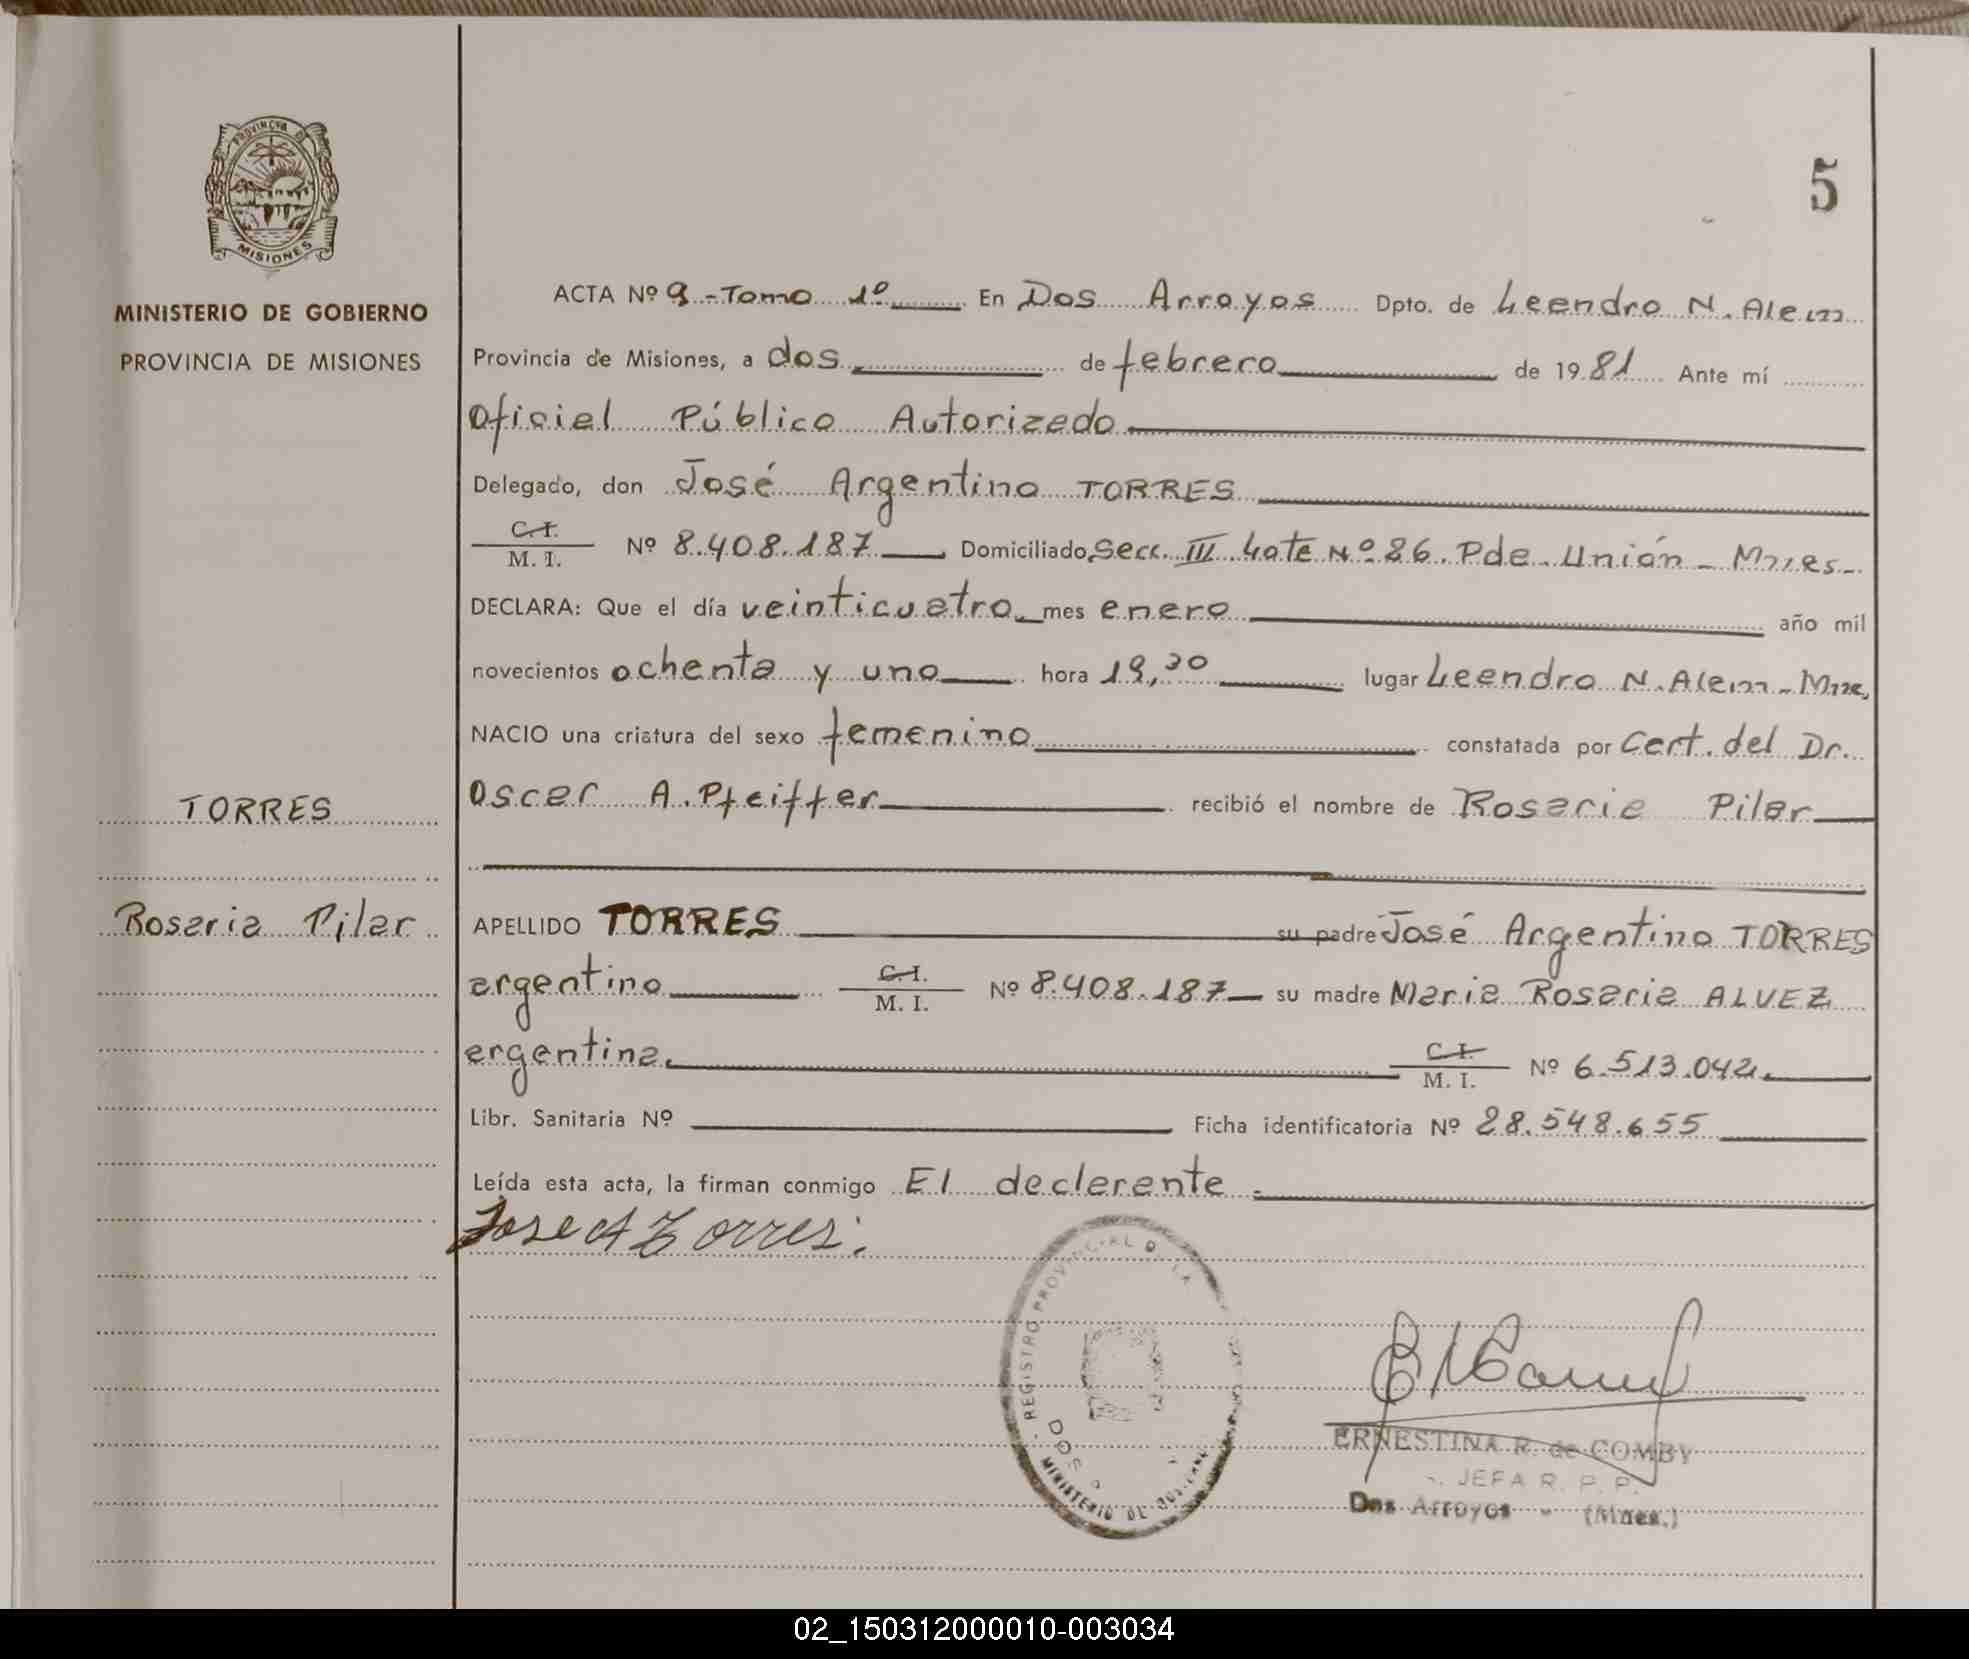 PROVINCIA DE
MISIONES
MINISTERIO DE GOBIERNO
PROVINCIA DE MISIONES
TORRES
Rosaria Pilar
5
ACTA Nº 9 - Tomo 1º En Dos Arroyos Dpto. de Leandro N. Alem
Provincia de Misiones, a dos de febrero de 1981 Ante mí
Oficial Público Autorizado
Delegado, don José Argentino TORRES
C.I.
M. I. Nº 8.408.187 Domiciliado Secc. III Lote Nº 86. Pde. Unión - Mnes-
DECLARA: Que el día veinticuatro mes enero año mil
novecientos ochenta y uno hora 19,30 lugar Leandro N. Alem - Mnes
NACIO una criatura del sexo femenino constatada por Cert. del Dr.
Oscar A. Pfeiffer recibió el nombre de Rosaria Pilar
APELLIDO TORRES su padre José Argentino TORRES
argentino C.I. M. I. Nº 8.408.187 su madre Maria Rosaria ALVEZ
argentina. C.I. M. I. Nº 6.513.042.
Libr. Sanitaria Nº Ficha identificatoria Nº 28.548.655
Leída esta acta, la firman conmigo El declarante.
Jose A Torres.
REGISTRO PROVINCIAL
DOS
MINISTERIO DE
ERNESTINA R. de COMBY
JEFA R. P. P.
Dos Arroyos - (Mnes.)
02_150312000010-003034